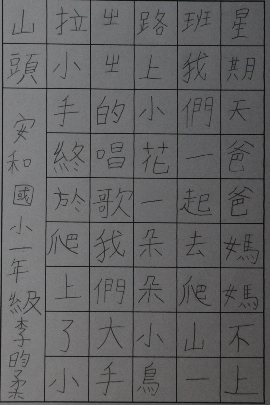 星期天爸爸媽媽不上
班我們一起去爬山一
路上小花一朵朵小鳥
ㄓㄓ的唱歌我們大手
拉小手終於爬上了小
山頭
安和國小一年級李昀柔